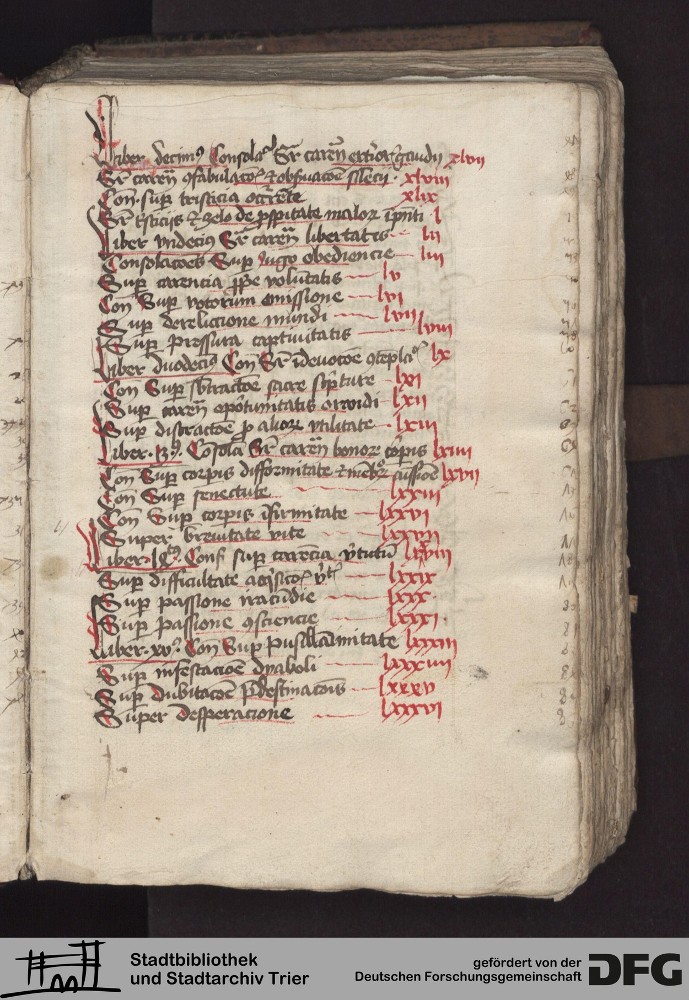 Liber decimus Consola Sr caren exterior gaudii xlvii
Sr caren confabulacois et observacoe silencij xlviii
Con sup tristicia occrente xlix
Sr tristicijs et zelo de prosperitate malor l
Liber undecimus Sr caren libertatis lii
Consolacoes Sup iugo obediencie liii
Sup carencia prpe voluntatis lv
Con Sup votorum omissione lvi
Sup derelictione mundi lvii
Sup pressura captivitatis lviii
Liber duodecimus Con Sr idevotoe lx
Con Sup sbtractoe sacre scripture lxi
Sup caren oportunitatis orandi lxii
Sup distractoe p alior utilitate lxiii
Liber 13 Consola Sr caren bonor corpis lxiiii
Con Sup corpis difformitate et mebror lxvii
Con Sup senectute lxxiii
Con Sup corpis ifirmitate lxxvi
Super brevitate vite lxxvii
Liber 14 Cons sup carecia virtutu lxxviii
Sup difficultate lxxix
Sup passione iracundie lxxx
Sup passione consciencie lxxxi
Liber xv Con Sup Pusillanimitate lxxxiii
Sup infestacioe dyaboli lxxxiiii
Sup dubitacoe pdestinacois lxxxv
Super desperacione lxxxvi
Stadtbibliothek
und Stadtarchiv Trier
gefördert von der
Deutschen Forschungsgemeinschaft
DFG